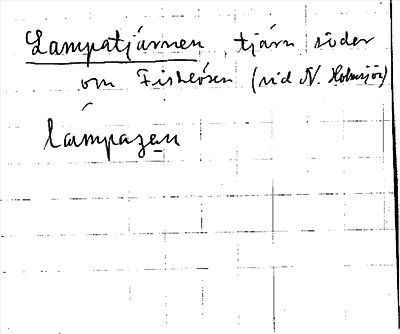 Lampatjärnen, tjärn söder
om Fisklösen (vid N. Holmsjön)
lámpazen